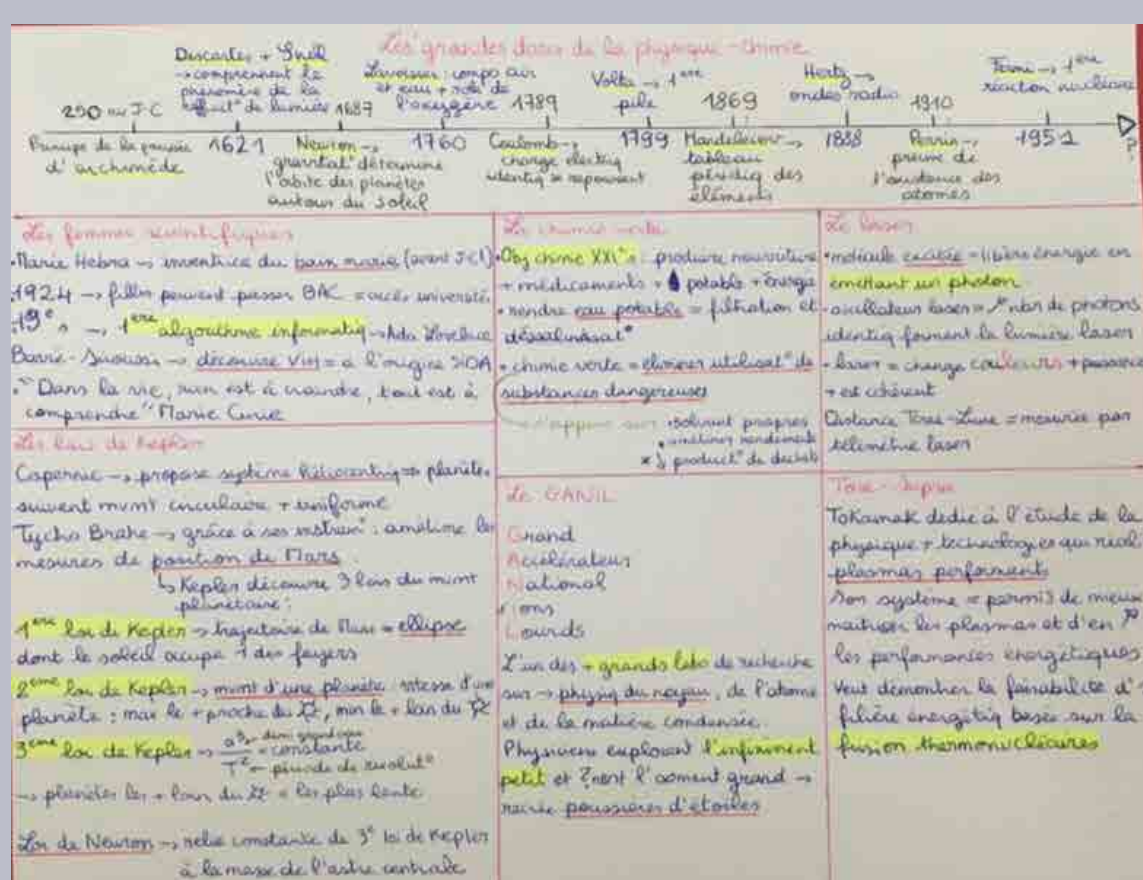 Les grandes dates de la physique-chimie
Descartes + Snell
→ comprennent le
phénomène de la
de lumière
1687
Lavoisier : compo air
et eau + rôle de
l'oxygène
1789
Volta → 1ère
pile
1869
Hertz →
ondes radio
1910
Fermi → 1ère
réaction nucléaire
250 av J-C
1621
1760
1799
1888
1951
de la poussée
d'archimède
Newton →
gravitat° détermine
l'obite des planètes
autour du soleil
Coulomb →
charge électriq
identiq se repoussent
→
tableau
périodiq des
éléments
Perrin →
preuve de
l'existence des
atomes
Les femmes scientifiques
• Marie Hebra → inventrice du bain marie (avant JC!)
• 1924 → filles peuvent passer BAC = accès université
• 19e s → 1ère algorithme informatiq → Ada Lovelace
Barré-Sinoussi → découvre VIH = à l'origine SIDA
• "Dans la vie, rien est à craindre, tout est à
comprendre" Marie Curie
Les lois de Kepler
Copernic → propose système héliocentriq → planètes
suivent mvmt circulaire + uniforme
Tycho Brahe → grâce à ses : améliore les
mesures de position de Mars
↳ Kepler découvre 3 lois du mvmt
planétaire :
1ère loi de Kepler → trajectoire de = ellipse
dont le soleil occupe 1 des foyers
2ème loi de Kepler → mvmt d'une planète : vitesse d'une
planète : max le + proche du, min le + loin du
3ème loi de Kepler → a³ ← demi grand axe
T² ← période de revolut° = constante
→ planètes les + loin du = les plus lente
Loi de Newton → relie constante de 3e loi de Kepler
à la masse de l'astre centrale
La chimie verte
• Obj chimie XXIe s : produire nourriture
+ médicaments + potable + énergie
• rendre eau potable = filtration et
désalinisat°
• chimie verte = éliminer utilisat° de
substances dangereuses
s'appuie sur • solvant propres
• améliorer rendements
• ↓ product° de déchets
Le GANIL
Grand
Accélérateur
National
Ions
Lourds
L'un des + grands labo de recherche
sur → physiq du noyau, de l'atome
et de la matière condensée.
Physiciens explorent l'infiniment
petit et l' grand →
recrée poussières d'étoiles
Le laser
• molécule excitée = libère énergie en
émettant un photon.
• oscillateur laser = ↗ nbr de photons
identiq forment la lumière laser
• laser = change couleurs + puissance
+ est cohérent
Distance Terre-Lune = mesurée par
télémètre laser
Tore-Supra
Tokamak dédié à l'étude de la
physique + technologies qui
plasmas performants
Son système = permis de mieux
maîtriser les plasmas et d'en ↗
les performances énergétiques
Veut démontrer la faisabilité d'
filière énergétiq basée sur la
fusion thermonucléaires